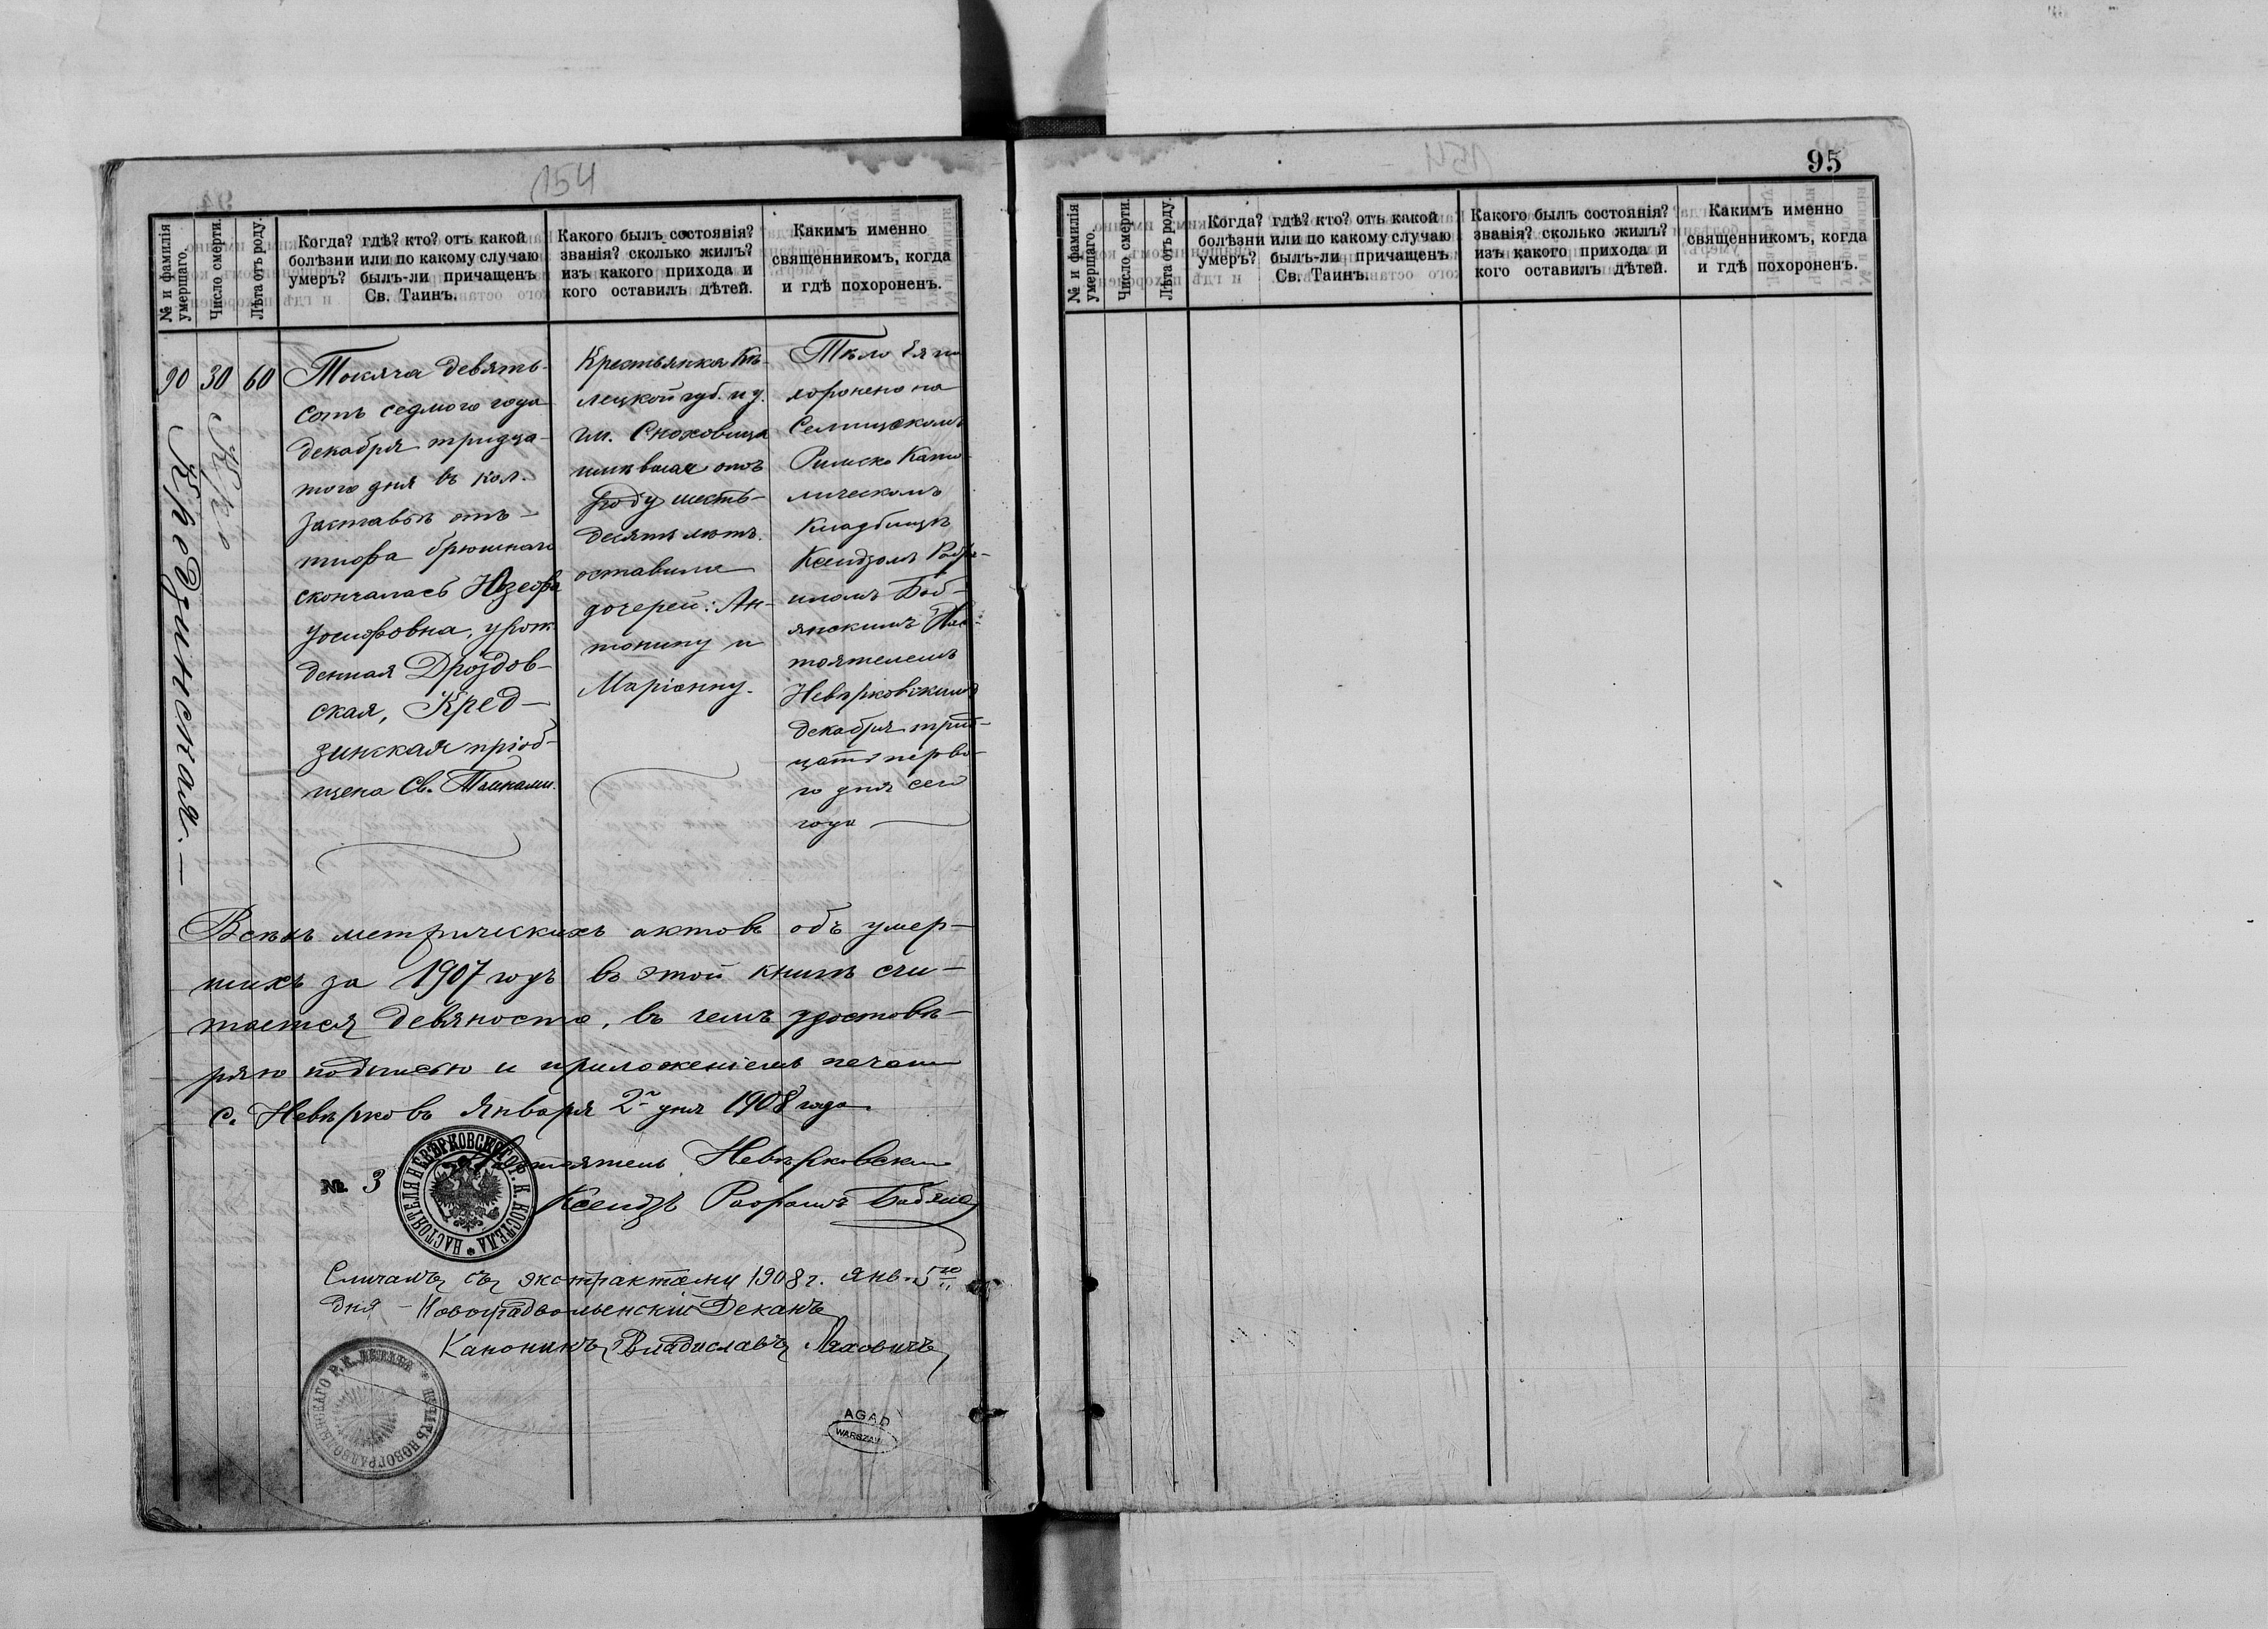 154
№ и фамилія умершаго.
Число смерти.
Лѣта отъ роду.
Когда? гдѣ? кто? отъ какой
болѣзни или по какому случаю
умеръ? былъ-ли причащенъ
Св. Таинъ.
Какого былъ состоянія?
званія? сколько жилъ?
изъ какого прихода и
кого оставилъ дѣтей.
Какимъ именно
священникомъ, когда
и гдѣ похороненъ.
90
Кредзинская.—
30
60
Тысяча девять-
сотъ седмого года
декабря тридца-
того дня въ кол.
Заставкѣ отъ
тифа брюшнаго
скончалась Юзефа
Іосифовна, урож-
денная Дроздов-
ская, Кред-
зинская пріоб-
щена Св. Тайнами.
Крестьянка Кѣ-
лецкой губ. и у.
гм.
отъ
роду шесть-
десятъ лѣтъ.
оставила
дочерей: Ан-
тонину и
Маріанну.
Тѣло Ея по
хоронено на
Селищскомъ
Римско Като-
лическомъ
Кладбищѣ
Ксендзомъ Рафа-
иломъ Боб-
янскимъ Нас-
тоятелемъ
Невѣрковскимъ
декабря трид-
цать перва-
го дня сего
года
Всѣхъ метрическихъ актовъ объ умер-
шихъ за 1907 годъ въ этой книгѣ счи-
тается девяносто, въ чемъ удостовѣ-
ряю подписью и приложеніемъ печати
с. Невѣрковъ Января 2го дня 1908 года.
Настоятель Невѣрковскій
№ 3
Ксендзъ Рафаилъ
НАСТОЯТЕЛЯ НЕВѢРКОВСКАГО Р. К. КОСТЕЛА
Сличалъ съ экстрактами 1908 г. янв. 5го
дня – Новоградволынскій Деканъ
Каноникъ Владиславъ Ляховичъ
ПЕЧАТЬ НОВОГРАДВОЛЫНСКАГО Р. К. ДЕКАНА
AGAD
WARSZAWA
95
№ и фамилія умершаго.
Число смерти.
Лѣта отъ роду.
Когда? гдѣ? кто? отъ какой
болѣзни или по какому случаю
умеръ? былъ-ли причащенъ
Св. Таинъ.
Какого былъ состоянія?
званія? сколько жилъ?
изъ какого прихода и
кого оставилъ дѣтей.
Какимъ именно
священникомъ, когда
и гдѣ похороненъ.